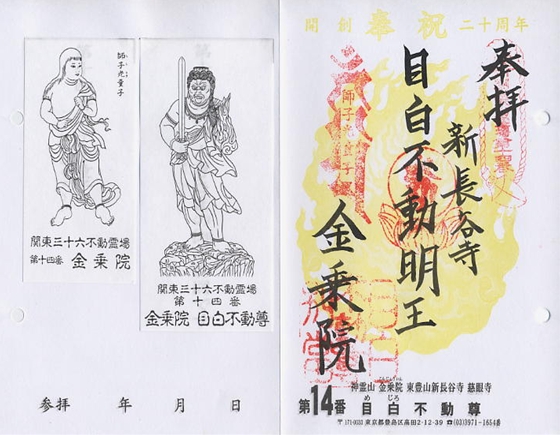 開創奉祝二十周年
奉拝
新長谷寺
目白不動明王
師子光童子
金乗院
神霊山 金乗院 東豊山新長谷寺 慈眼寺
めじろ
第14番 目白不動尊
〒171-0033 東京都豊島区高田2-12-39 ☎(03)3971-1654番
師子光童子
関東三十六不動霊場
第十四番 金乗院
関東三十六不動霊場
第十四番
金乗院 目白不動尊
参拝 年 月 日